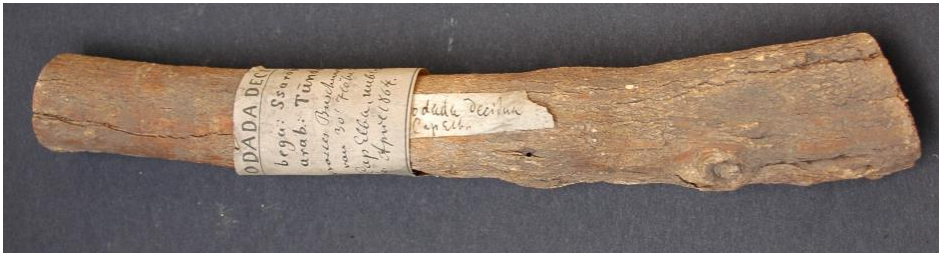 ODÁDA DEC
bega: Ssaro
arab: Tūn
Busch
von 30' Höhe
Cap Elba, nub
April 1864.
odada Decidua
Cap Elba